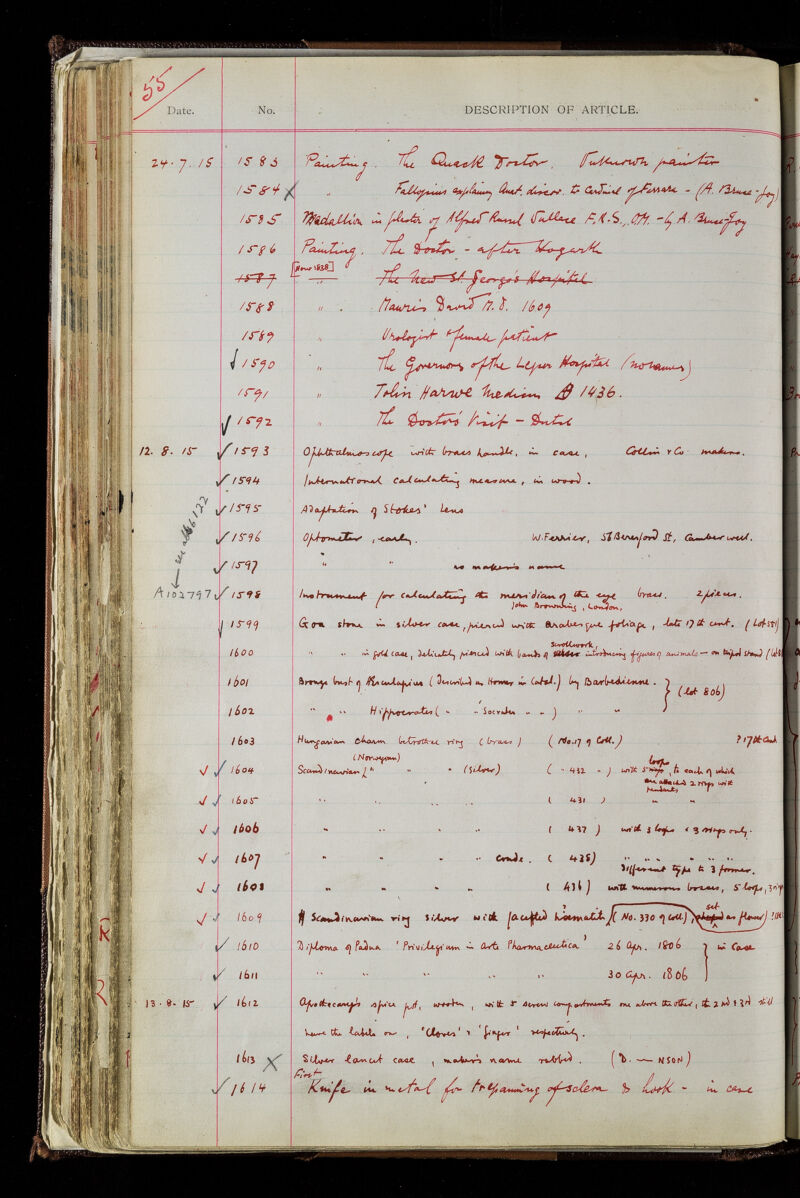 55
Date. No. DESCRIPTION OF ARTICLE.
24. 7. 15 1583 Painting. The Quack Doctor. Unknown painter
1584 " Fallopius explaining Anat. discov. to Cardinal of Ferrara - (A. Bruce-Joy)
1585 Medallion in plaster of Alfred Russel Wallace F.R.S., O.M. - by A. Bruce-Joy
1586 Painting. The Doctor - after Hogarth
1587 [Now 1838] " The new St. George's Hospital
1588 " . Mauris David M.D. 1609
1589 " Urologist & female patient
1590 " The Governors of the Leper Hospital (no names)
1591 " Tolin Harwe Medicin 1436.
1592 " The Doctor's Visit - Dutch
12. 8. 15 1593 Ophthalmoscope with brass handle, in case, Collin & Co makers.
1594 International calculating measure, in wood.
1595 Adaptation of Stokes' Lens
1596 Optometer, early. W. Ferrier, 56 Beresford St, Camberwell.
1597 " " no maker's name
A102797 1598 Instrument for calculating the meridian of the eye brass. 2 pieces.
John Browning, London,
1599 Goa stone in silver case, pierced with arabesque foliage, late 17th cent. (Lot 551)
scrollwork
1600 " " in gold case, delicately pierced with bands of introducing figures of animals — on tripod stand
1601 Bronze bust of Aesculapius (Described as Homer in Catal.) by Barbedienne. } (lot 806)
1602 " " Hippocrates ( " " Socrates " " ) " "
1603 Hungarian charm betrothal ring (brass) (No. 17 of Coll.) ? 17th Cent.
(Norwegian) loops
1604 Scandinavian " " (silver) ( " 432 " ) with 5, to each of which
are attached 2 rings with
pendants
1605 " " " " ( 431 ) " "
1606 " " " " ( 437 ) with 3 loops & 3 rings only.
1607 " " " " crude. ( 435) " " " "
different type to 3 former.
1608 " " " " ( 436) with numerous bosses, 5 loops,
set
1609 Scandinavian ring silver with facetted haematite (No. 330 of Coll.), shaped as flower)
1610 Diploma of Padua 'Privilegium in arte Pharmaceutica' 26 Apr. 1806 } in Case
1611 " " " " " 30 Apr. 1806
13. 8. 15 1612 Apothecary's spice pot, wooden, with 5 screw compartments one above the other, the 2nd & 3rd still
have the labels on, 'Cloves' & 'ginger' respectively.
1613 Silver lancet case, maker's name rubbed. (D. — NSON)
First
1614 Knife in metal for trepanning of sclera & hook - in case